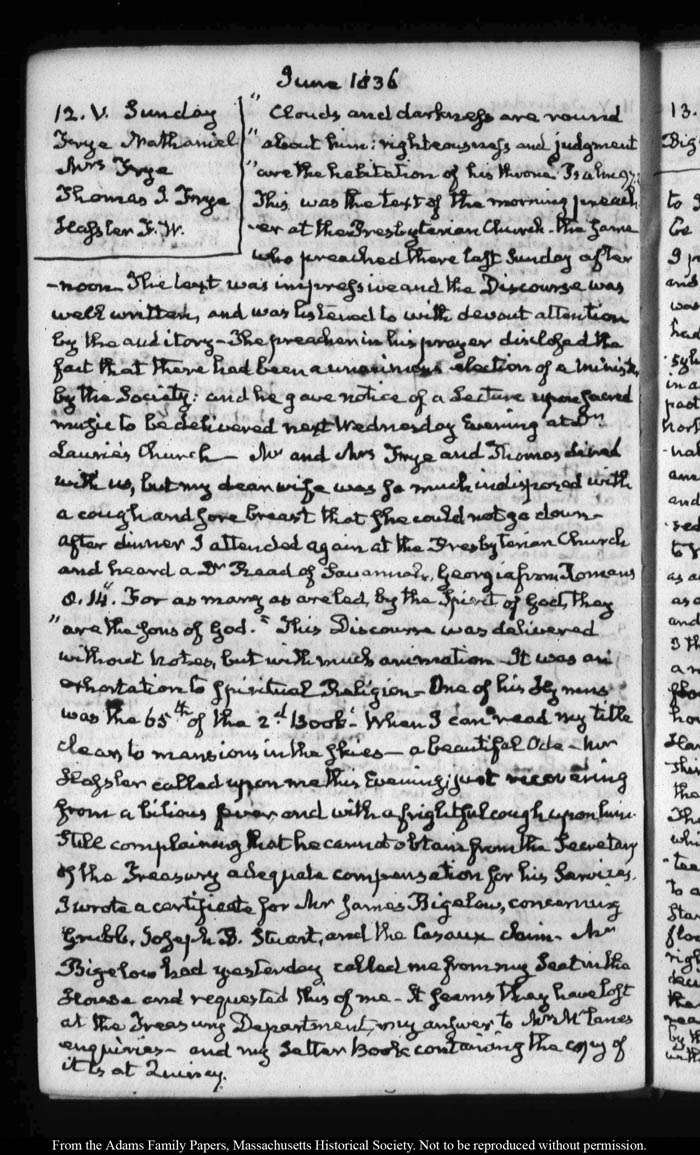 June 1836
12. V. Sunday
Frye Nathaniel
Mrs Frye
Thomas I. Frye
Hassler F. W.
" Clouds and darkness are round
" about him: righteousness and judgment
" are the habitation of his throne. Psalm 97.
This was the text of the morning preach
-er at the Presbyterian Church. the same
who preached there last Sunday after
-noon. The text was impressive and the Discourse was
well written, and was listened to with devout attention
by the auditory – The preacher in his prayer disclosed the
fact that there had been a unanimous election of a Minister
by the Society: and he gave notice of a Lecture upon sacred
music to be delivered next Wednesday Evening at Dr
Laurie's Church – Mr and Mrs Frye and Thomas dined
with us, but my dear wife was so much indisposed with
a cough and sore breast that she could not go down –
After dinner I attended again at the Presbyterian Church
and heard a Dr Read of Savannah, Georgia from Romans
8. 14. " For as many as are led, by the Spirit of God, they
" are the sons of God. " This Discourse was delivered
without notes, but with much animation – It was an
exhortation to spiritual Religion – One of his Hymns
was the 65th of the 2d Book – When I can read my title
clear, to mansions in the skies – a beautiful Ode – Mr
Hassler called upon me this Evening; just recovering
from a bilious fever and with a frightful cough upon him.
Still complaining that he cannot obtain from the Secretary
of the Treasury adequate compensation for his Services.
I wrote a certificate for Mr James Bigelow, concerning
Grubb, Joseph B. Stuart, and the Cazaux claim. Mr
Bigelow had yesterday called me from my Seat in the
House and requested this of me – It seems they have lost
at the Treasury Department, my answer to Mr McLane's
enquiries – and my Letter Book containing the copy of
it is at Quincy.
13.
Big
to
be
and
was
had
in a
and
to
as a
and
a
how
the
who
to a
the
by
with
From the Adams Family Papers, Massachusetts Historical Society. Not to be reproduced without permission.